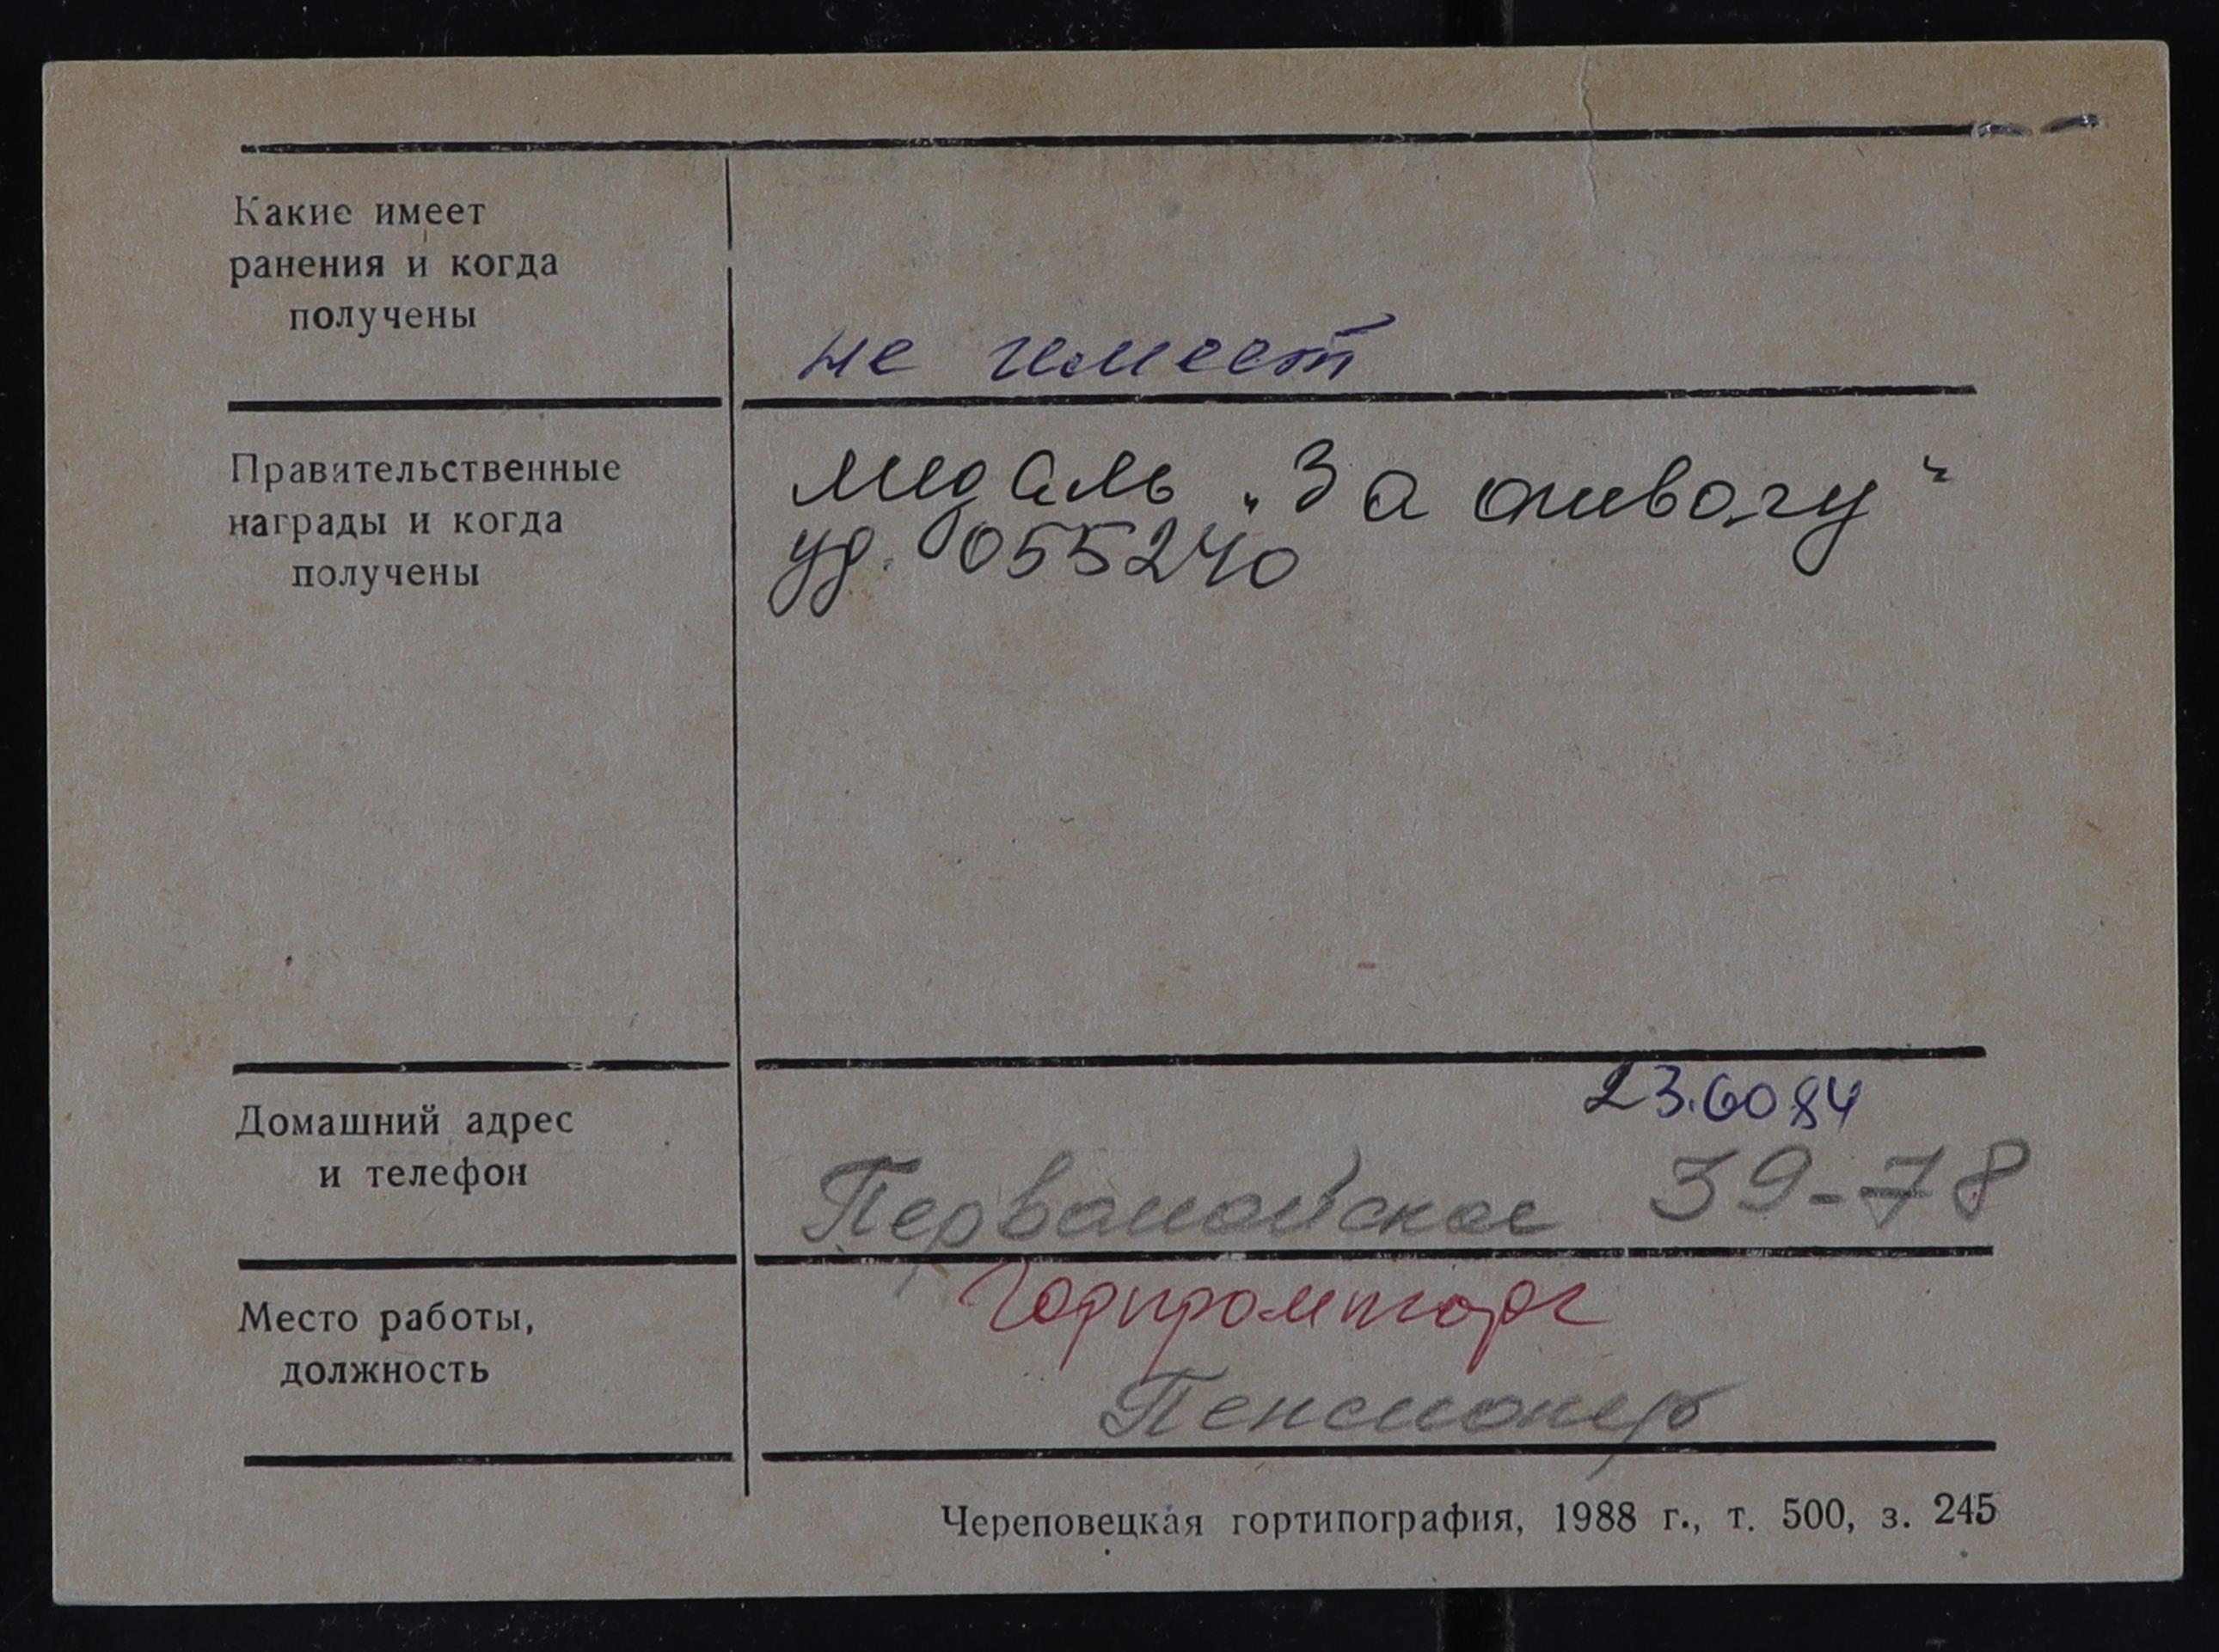 Какие имеет
ранения и когда
получены
не имеет
Правительственные
награды и когда
получены
медаль „За отвагу“
уд. 055240
Домашний адрес
и телефон
23.60 84
Первомайская 39-78
Место работы,
должность
Горпромторг
Пенсионер
Череповецкая гортипография, 1988 г., т. 500, з. 245